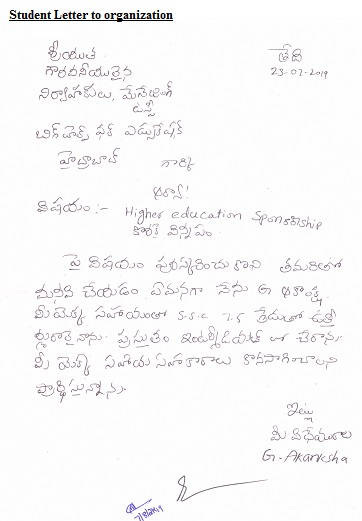 Student Letter to organization
శ్రీయుత తేది
గౌరవనీయులైన 23-07-2019
నిర్వాహకులు, మేనేజింగ్
ట్రస్టీ
బిగ్ హెల్ప్ ఫర్ ఎడ్యుకేషన్
హైద్రాబాద్ గార్కి
ఆర్యా!
విషయం:- Higher education Sponsorship
కొరకై విన్నపం.
పై విషయం పురస్కరించుకొని తమరితో
మనవి చేయడం ఏమనగా నేను G ఆకాంక్ష
మీ యొక్క సహాయంతో S.S.C 7.5 గ్రేడుతో ఉత్తీ
ర్ణురాలైనాను. ప్రస్తుతం ఇంటర్మీడియట్ లో చేరాను.
మీ యొక్క సహాయ సహకారాలు కొనసాగించాలని
ప్రార్థిస్తున్నాను.
ఇట్లు
మీ విధేయురాలు
G. Akanksha